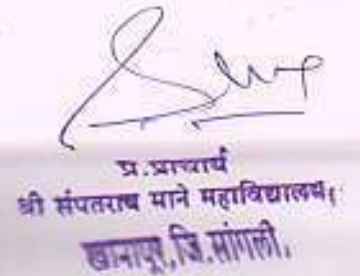 प्र.प्राचार्य
श्री संपतराव माने महाविद्यालय,
खानापूर,जि.सांगली.